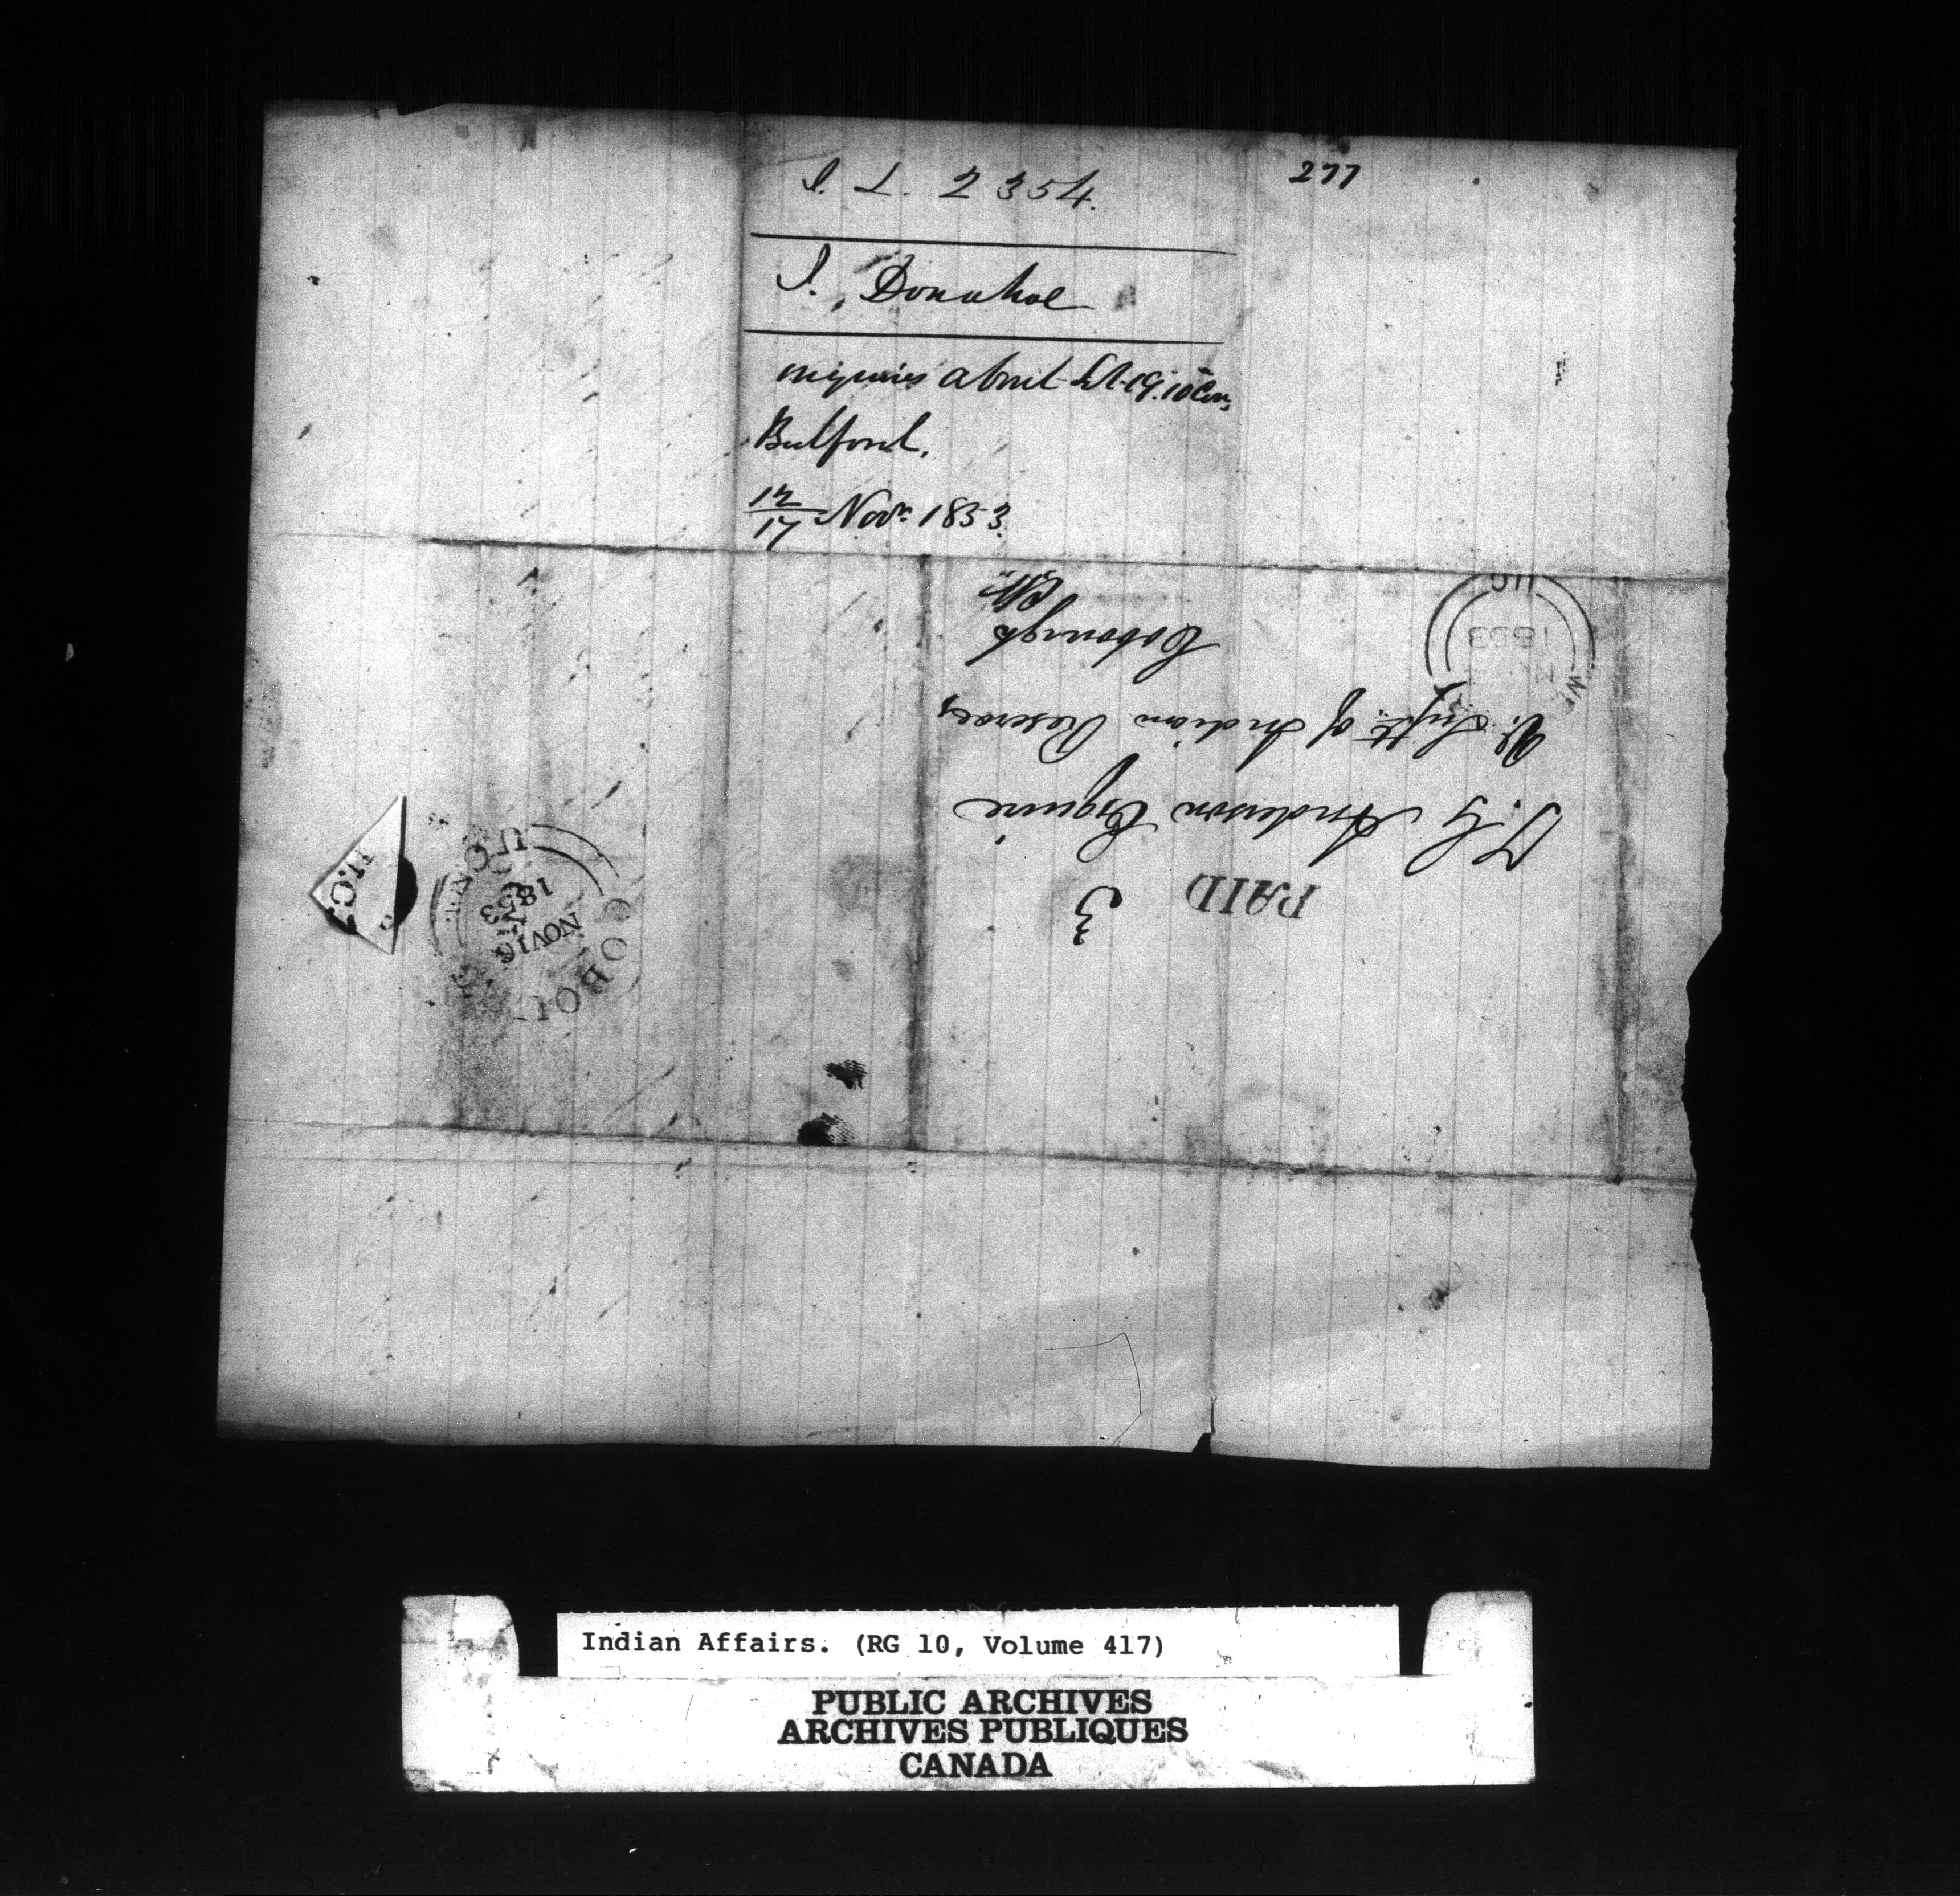 277
I. L. 2354.
I. Donahoe
inquires about Lt. 19. 10 Con,
Bulford.
14/17 Nov. 1853.
PAID
3
T. G. Anderson Esquire
V. Supt. of Indian Reserves
Cobourgh
CW
1853
U.C.
COBOU
NOV 16
1853
U.C.
Indian Affairs. (RG 10, Volume 417)
PUBLIC ARCHIVES
ARCHIVES PUBLIQUES
CANADA